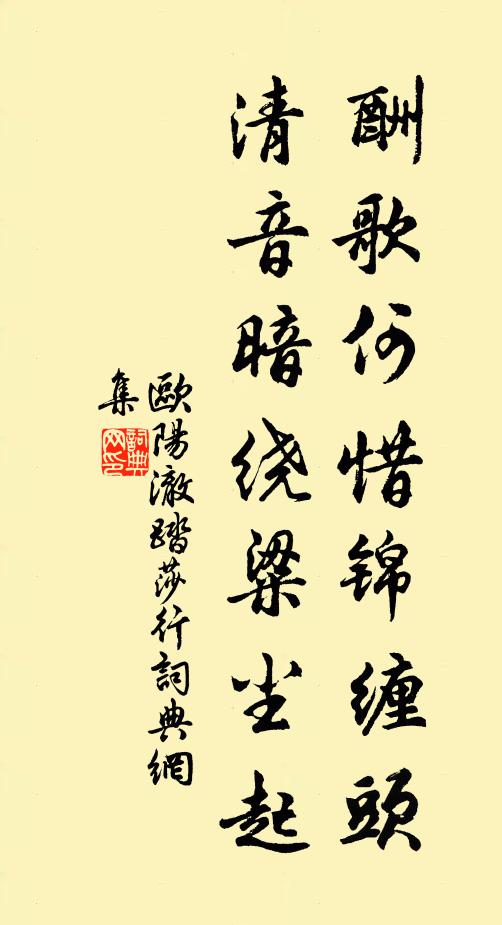 酬歌何惜锦缠頭
清音暗绕梁尘起
歐陽澈踏莎行詞典網
集
詞典网印